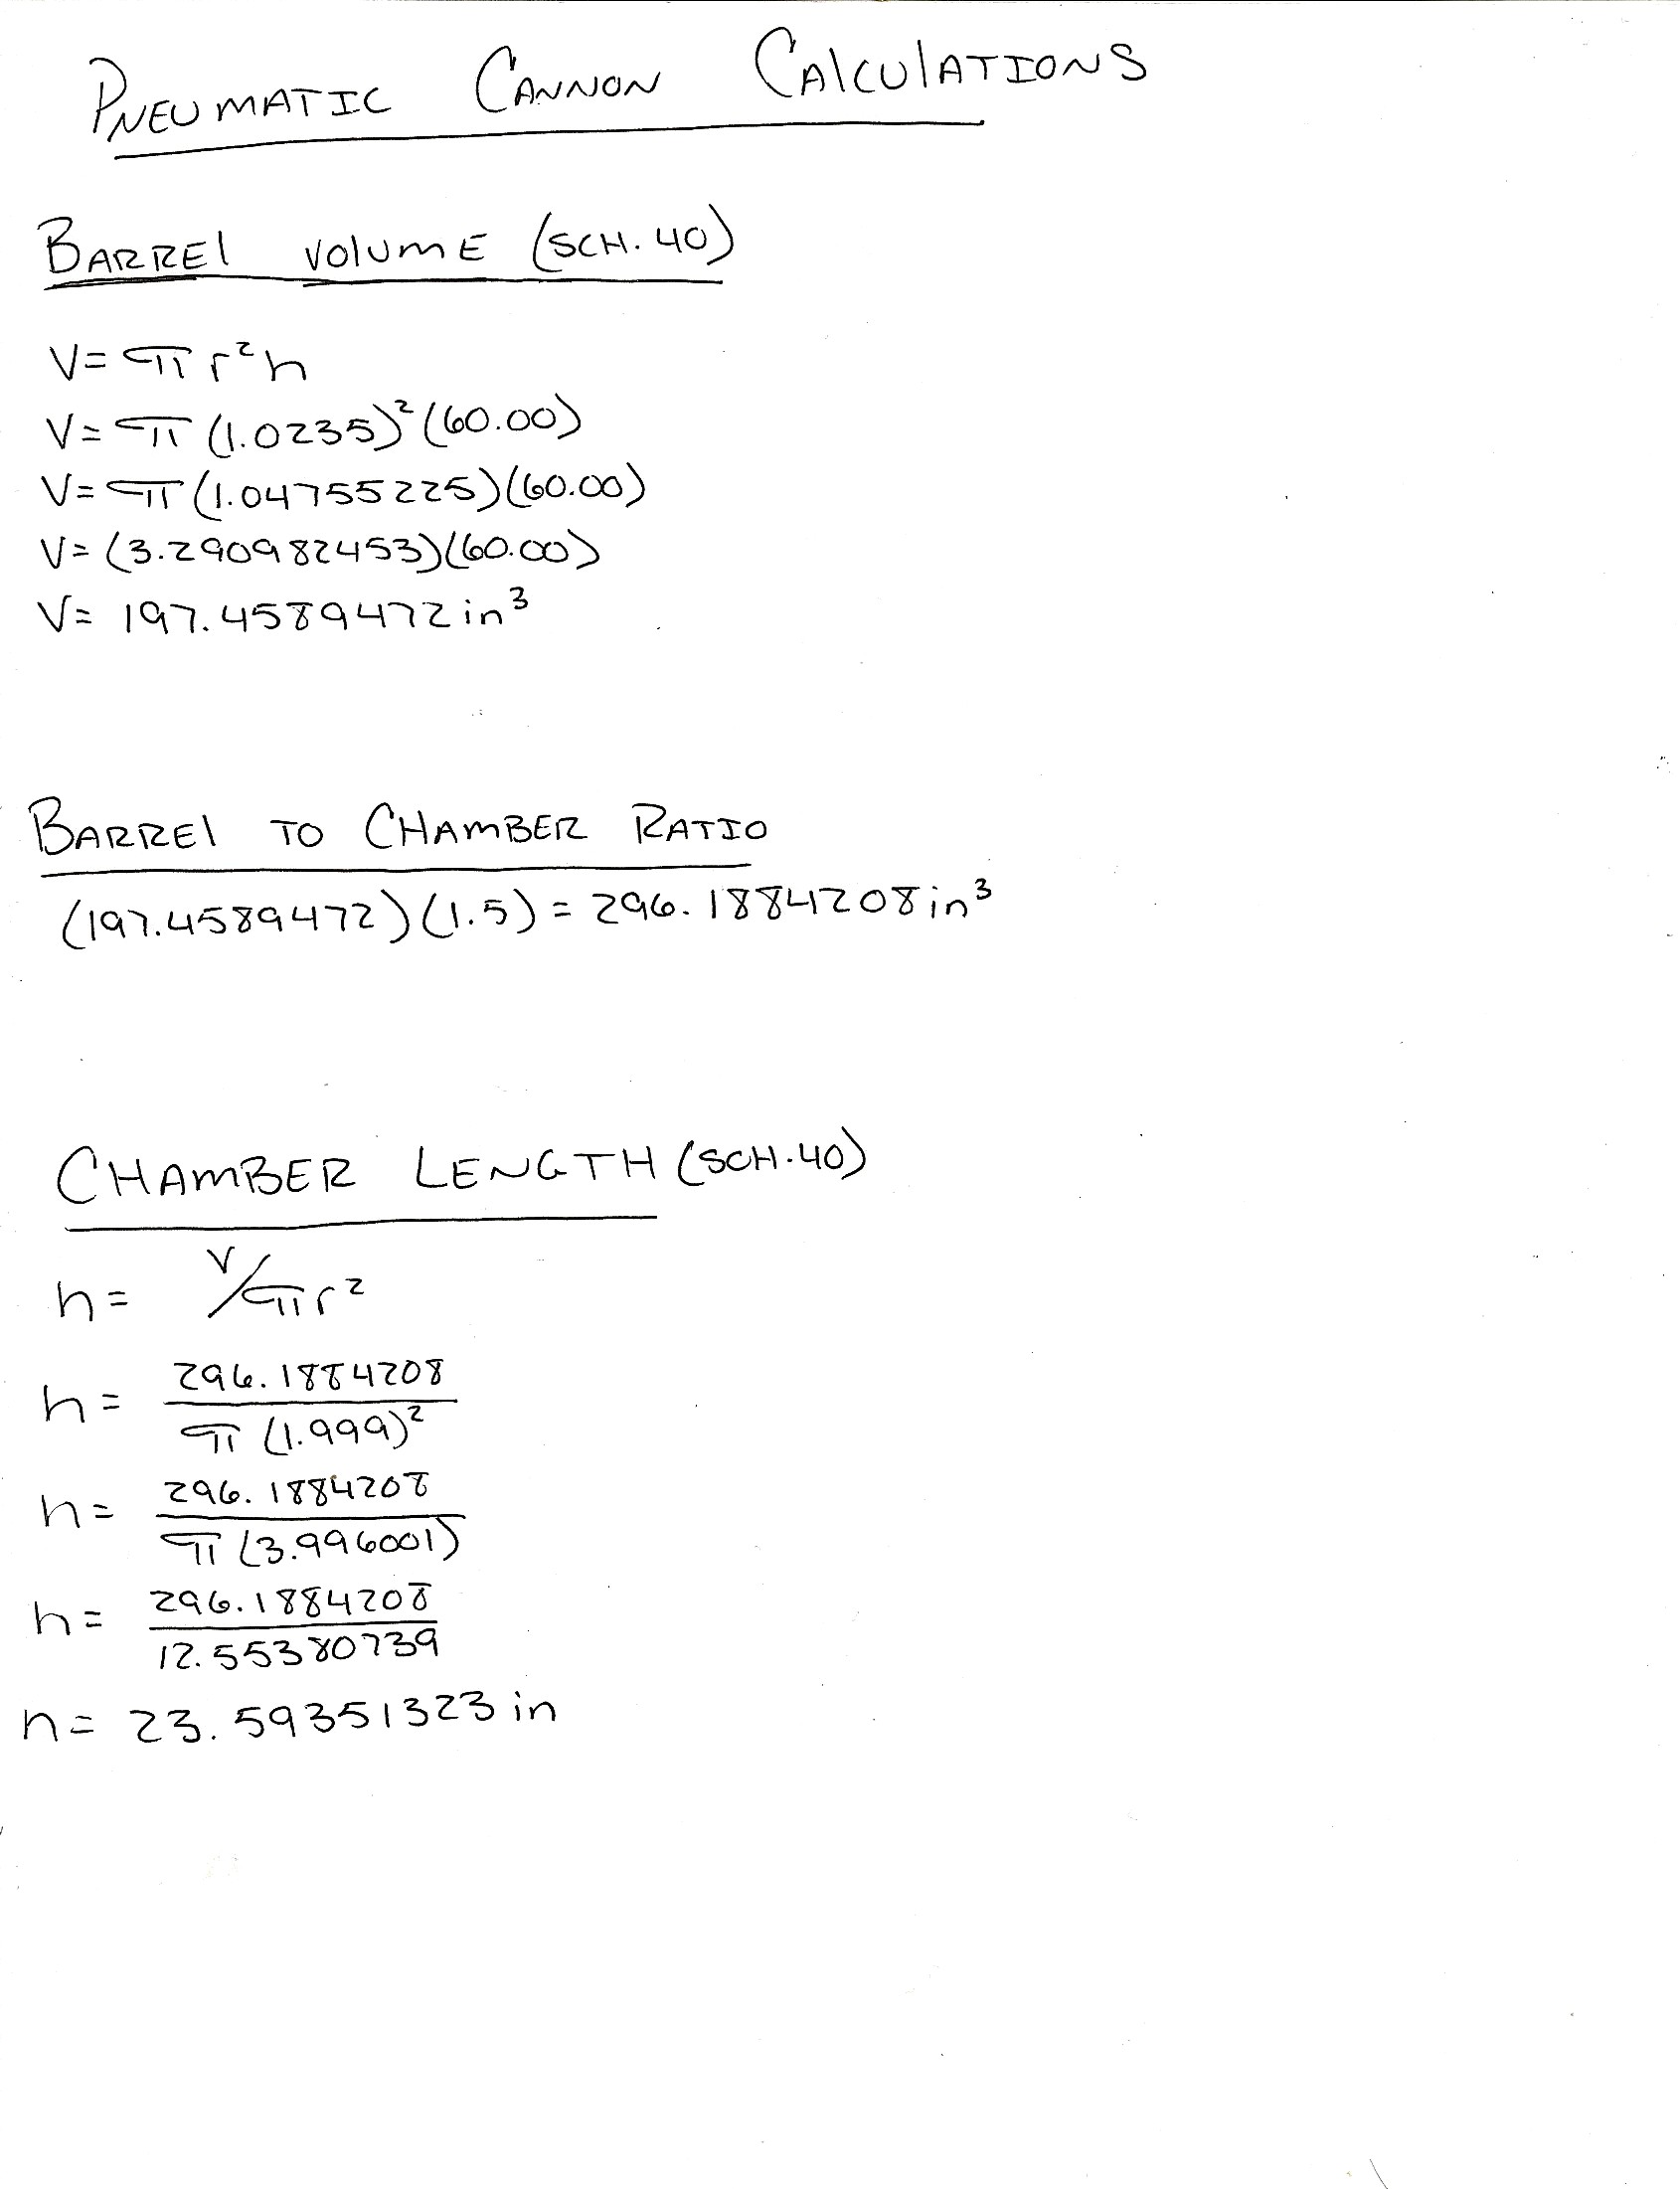 PNEUMATIC CANNON CALCULATIONS
BARREL VOLUME (SCH. 40)
V= π r²h
V= π (1.0235)² (60.00)
V= π (1.04755225)(60.00)
V= (3.290982453)(60.00)
V= 197.4589472 in³
BARREL TO CHAMBER RATIO
(197.4589472)(1.5) = 296.1884208 in³
CHAMBER LENGTH (SCH. 40)
h= V/πr²
h= 296.1884208 / π (1.999)²
h= 296.1884208 / π (3.996001)
h= 296.1884208 / 12.55380739
h= 23.59351323 in